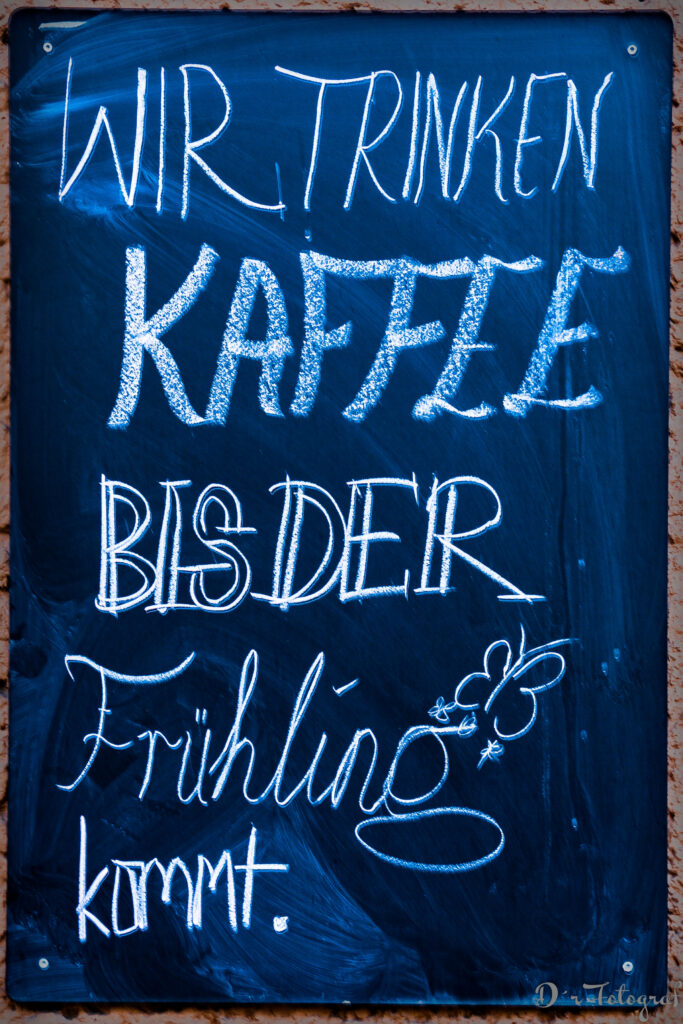 WIR TRINKEN
KAFFEE
BIS DER
Frühling
kommt.
D´r Fotograf